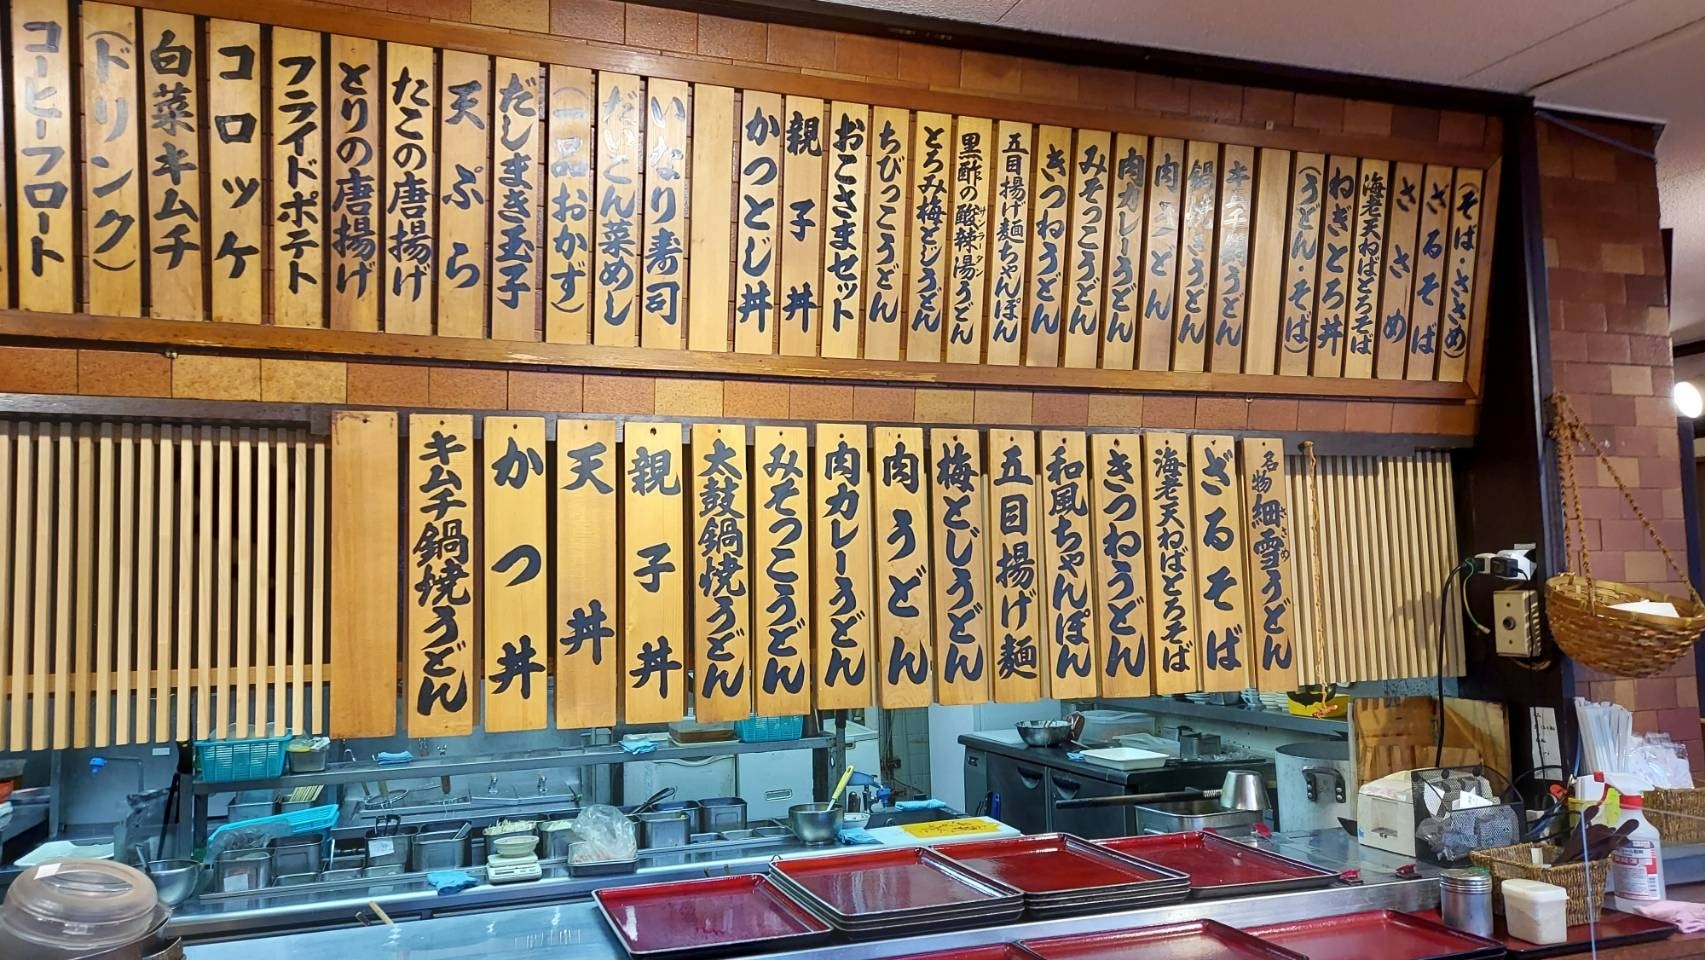 (そば・ささめ)
ざるそば
ささめ
海老天ねばとろそば
ねぎとろ丼
(うどん・そば)
鍋焼きうどん
肉うどん
肉カレーうどん
みそっこうどん
きつねうどん
五目揚げ麺ちゃんぽん
黒酢の酸辣湯うどん
サンラータン
とろみ梅とじうどん
ちびっこうどん
おこさまセット
親子丼
かつとじ丼
いなり寿司
だいこん菜めし
(一品おかず)
だしまき玉子
天ぷら
たこの唐揚げ
とりの唐揚げ
フライドポテト
コロッケ
白菜キムチ
(ドリンク)
コーヒーフロート
名物細雪うどん
ささめ
ざるそば
海老天ねばとろそば
きつねうどん
和風ちゃんぽん
五目揚げ麺
梅とじうどん
肉うどん
肉カレーうどん
みそっこうどん
太鼓鍋焼うどん
親子丼
天丼
かつ丼
キムチ鍋焼うどん